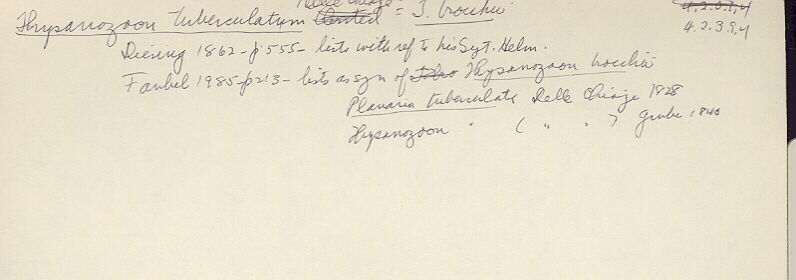 Delle Chiaje
Thysanozoon tuberculatum = T. brocchii
4.2.3.9.4
Diesing 1862 - p 555 - lists with ref to his Syst. Helm.
Faubel 1985 - p213 - lists as syn of Thysanozoon brocchii
Planaria tuberculata Delle Chiaje 1828
Thysanozoon " ( " " ) Grube 1840